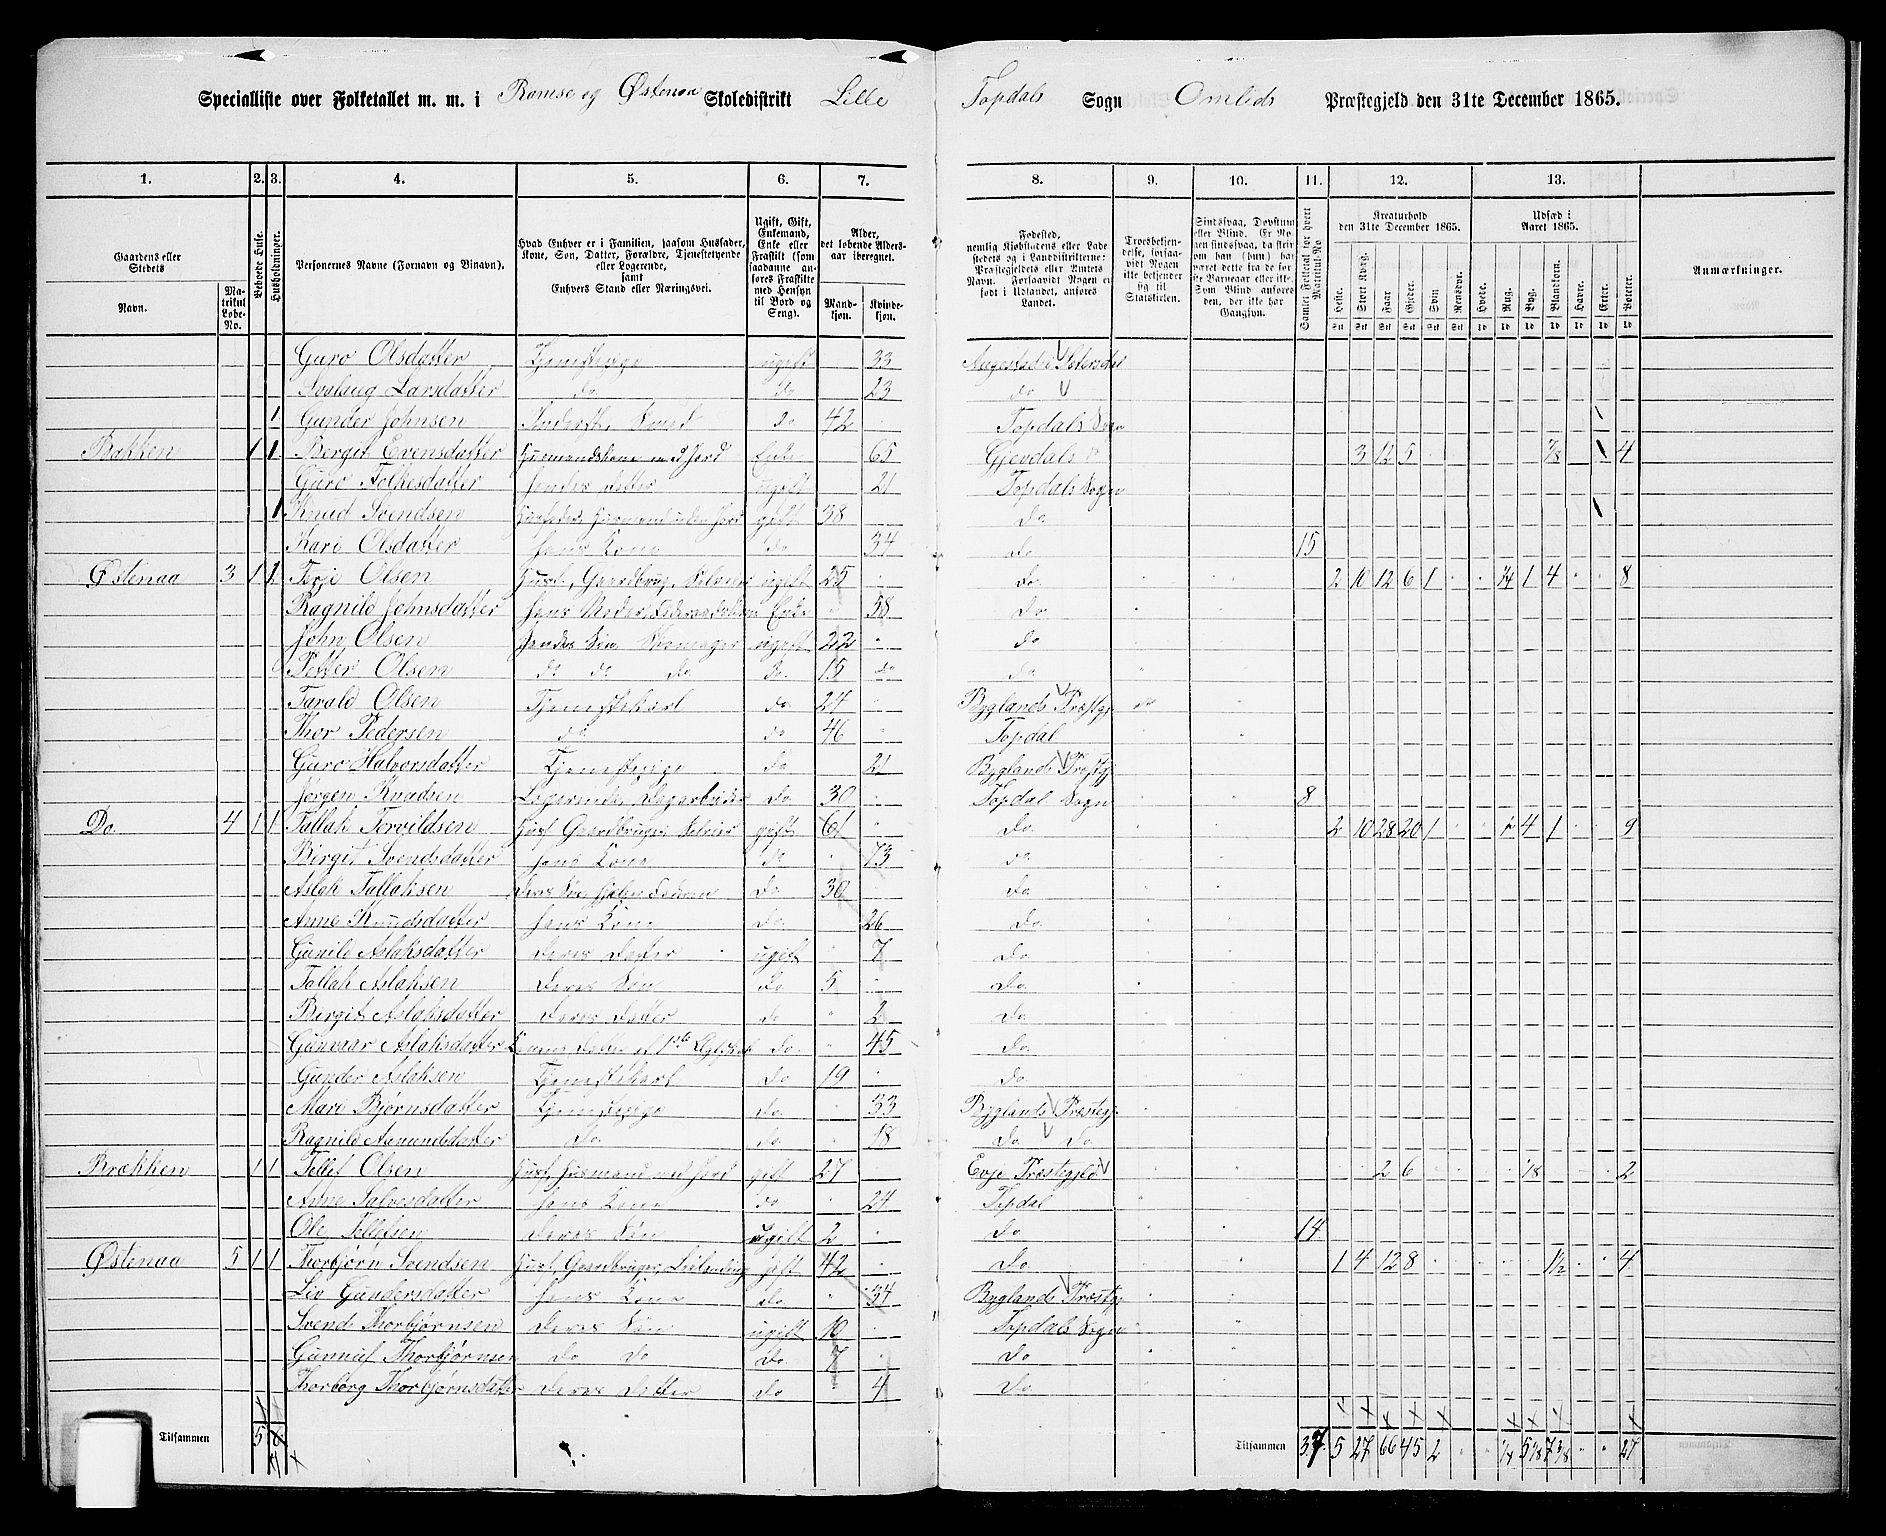 Specialliste over Folketallet m. m. i Ramse og Østenaa Skoledistrikt Lille Topdals Sogn Omlids Præstegjeld den 31te December 1865.
1. 2. 3. 4. 5. 6. 7. 8. 9. 10. 11. 12. 13.
Gaardens eller Stedets
Navn.
Matrikul Løbe-No.
Beboede Huse.
Husholdninger.
Personernes Navne (Fornavn og Binavn).
Hvad Enhver er i Familien, saasom Husfader, Kone, Søn, Datter, Forældre, Tjenestetyende eller Logerende, samt Enhvers Stand eller Næringsvei.
Ugift, Gift, Enkemand, Enke eller Fraskilt (som saadanne anføres Fraskilte med Hensyn til Bord og Seng).
Alder, det løbende Aldersaar iberegnet.
Mandkjøn.
Kvindekjøn.
Fødested, nemlig Kjøbstadens eller Ladestedets og i Landdistrikterne: Præstegjeldets eller Amtets Navn. Forsaavidt Nogen er født i Udlandet, anføres Landet.
Troesbekjendelse, forsaavidt Nogen ikke bekjender sig til Statskirken.
Samlet Folketal for hvert Matrikul-No.
Kreaturhold den 31te December 1865.
Heste. Stort Kvæg. Faar Gjeder. Svin Rensdyr.
Udsæd i Aaret 1865.
Hvede. Rug. Byg. Blandkorn. Havre. Erter. Poteter.
Anmærkninger.
Guro Olsdatter Tjenestepige ugift 33
Larsdatter do do 23 do
Gunder Johnsen 1 Smed do 42 Topdals Sogn
Bakken 1 1 Bergit Evensdatter Husmandskone med Jord Enke 65 Gjevdals 3 12 5 7/8 4
Guro Folkesdatter hendes Datter ugift 21 Topdals Sogn
1 Knud Svendsen Husfader, Husmand uden Jord gift 38 Do
Kari Olsdatter hans Kone do 34 Do 15
Østenaa 3 1 1 Terje Olsen Husf., Gaardbrug. Selveier ugift 25 Do 2 10 12 6 1 1/4 1 4 8
Ragnild Johnsdatter hans Moder, Enke 58 Do
John Olsen hendes Søn, Skomager ugift 22 Do
Petter Olsen do do do do. 15 do do
Tarald Olsen Tjenestekarl do 24 Byglands Præstgj.
Thor Pedersen do do 46 Topdal
Guro Halvorsdatter Tjenestepige do 21 Byglands Præstgj.
Jørgen Knudsen Logerende, Dagarbeider Do 30 Topdal Sogn 8
Do 4 1 1 Tallak Torvildsen Husf. Gaardbruger Selveier gift 61 Do 2 10 28 20 1 4 1 9
Bergit Svendsdatter hans Kone do 73 do
Aslak Tallaksen Deres Søn, hjelper Faderen Do 30 Do
Anne Knudsdatter hans Kone Do 26 Do
Gunild Aslaksdatter deres Datter ugift 7 Do
Tallak Aslaksen deres Søn do 5 Do
Bergit Aslaksdatter deres Datter do 2 Do
Gunvaar Aslaksdatter af 1ste do. 45 Do
Gunder Aslaksen Tjenestekarl Do 19 Do
Mari Bjørnsdatter Tjenestepige Do. 33 Byglands Præstegj.
Ragnild Aamundsdatter Do. Do. 18 Do Do
Brækken 1 1 Tellef Olsen Husf. Husmand med Jord gift 27 Evje Præstegjeld 2 6 1/8 2
Anne Salvesdatter hans Kone do 24 Topdal
Ole Tellefsen deres Søn ugift 2 Do 14
Østenaa 5 1 1 Thorbjørn Svendsen Husf. Gaardbruger, Leilending gift 42 Do 1 4 12 8 1 1/2 4
Liv Gundersdatter hans Kone do 34 Byglands Præstgj
Svend Thorbjørnsen deres Søn ugift 10 Topdals Sogn
Gunnuf Thorbjørnsen Do Do Do. 7 Do
Thorborg Thorbjørnsdatter deres Datter Do 4 Do
Tilsammen 5 Tilsammen 37 5 27 66 45 2 1/4 5 1/8 7 3/8 27